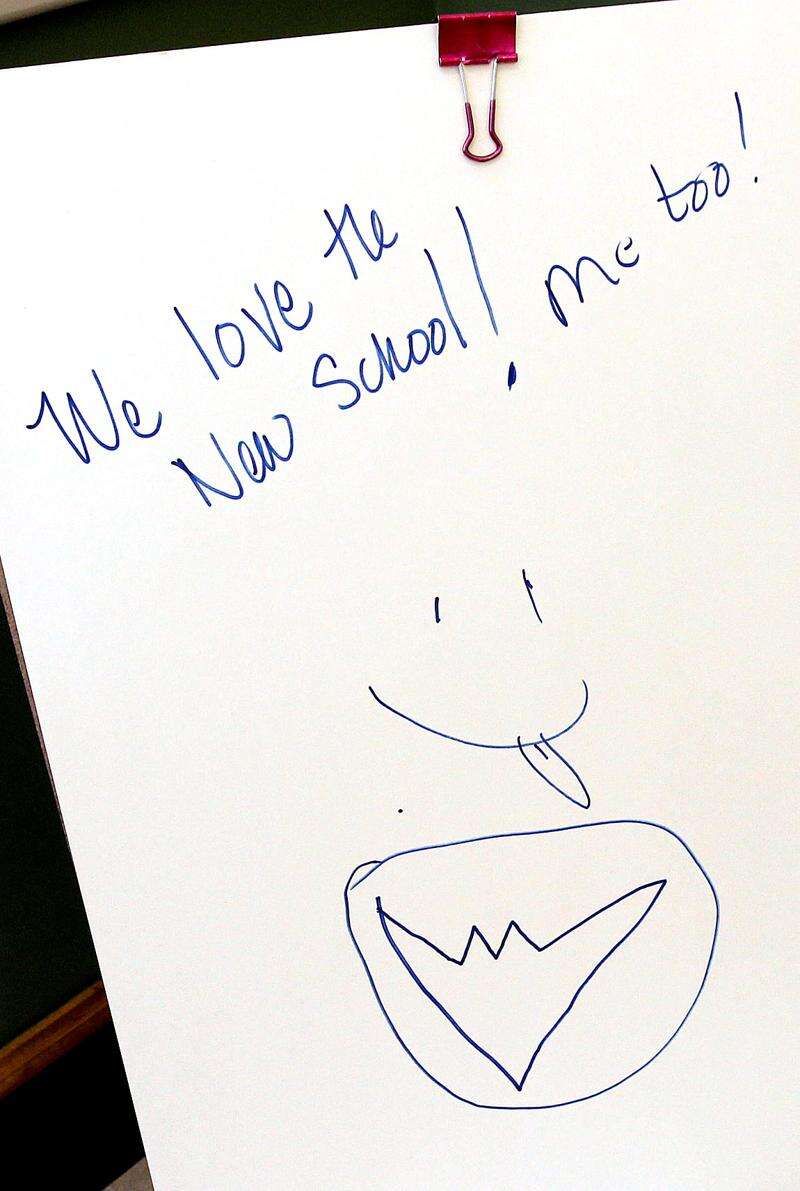 We love the
New School! Me too!